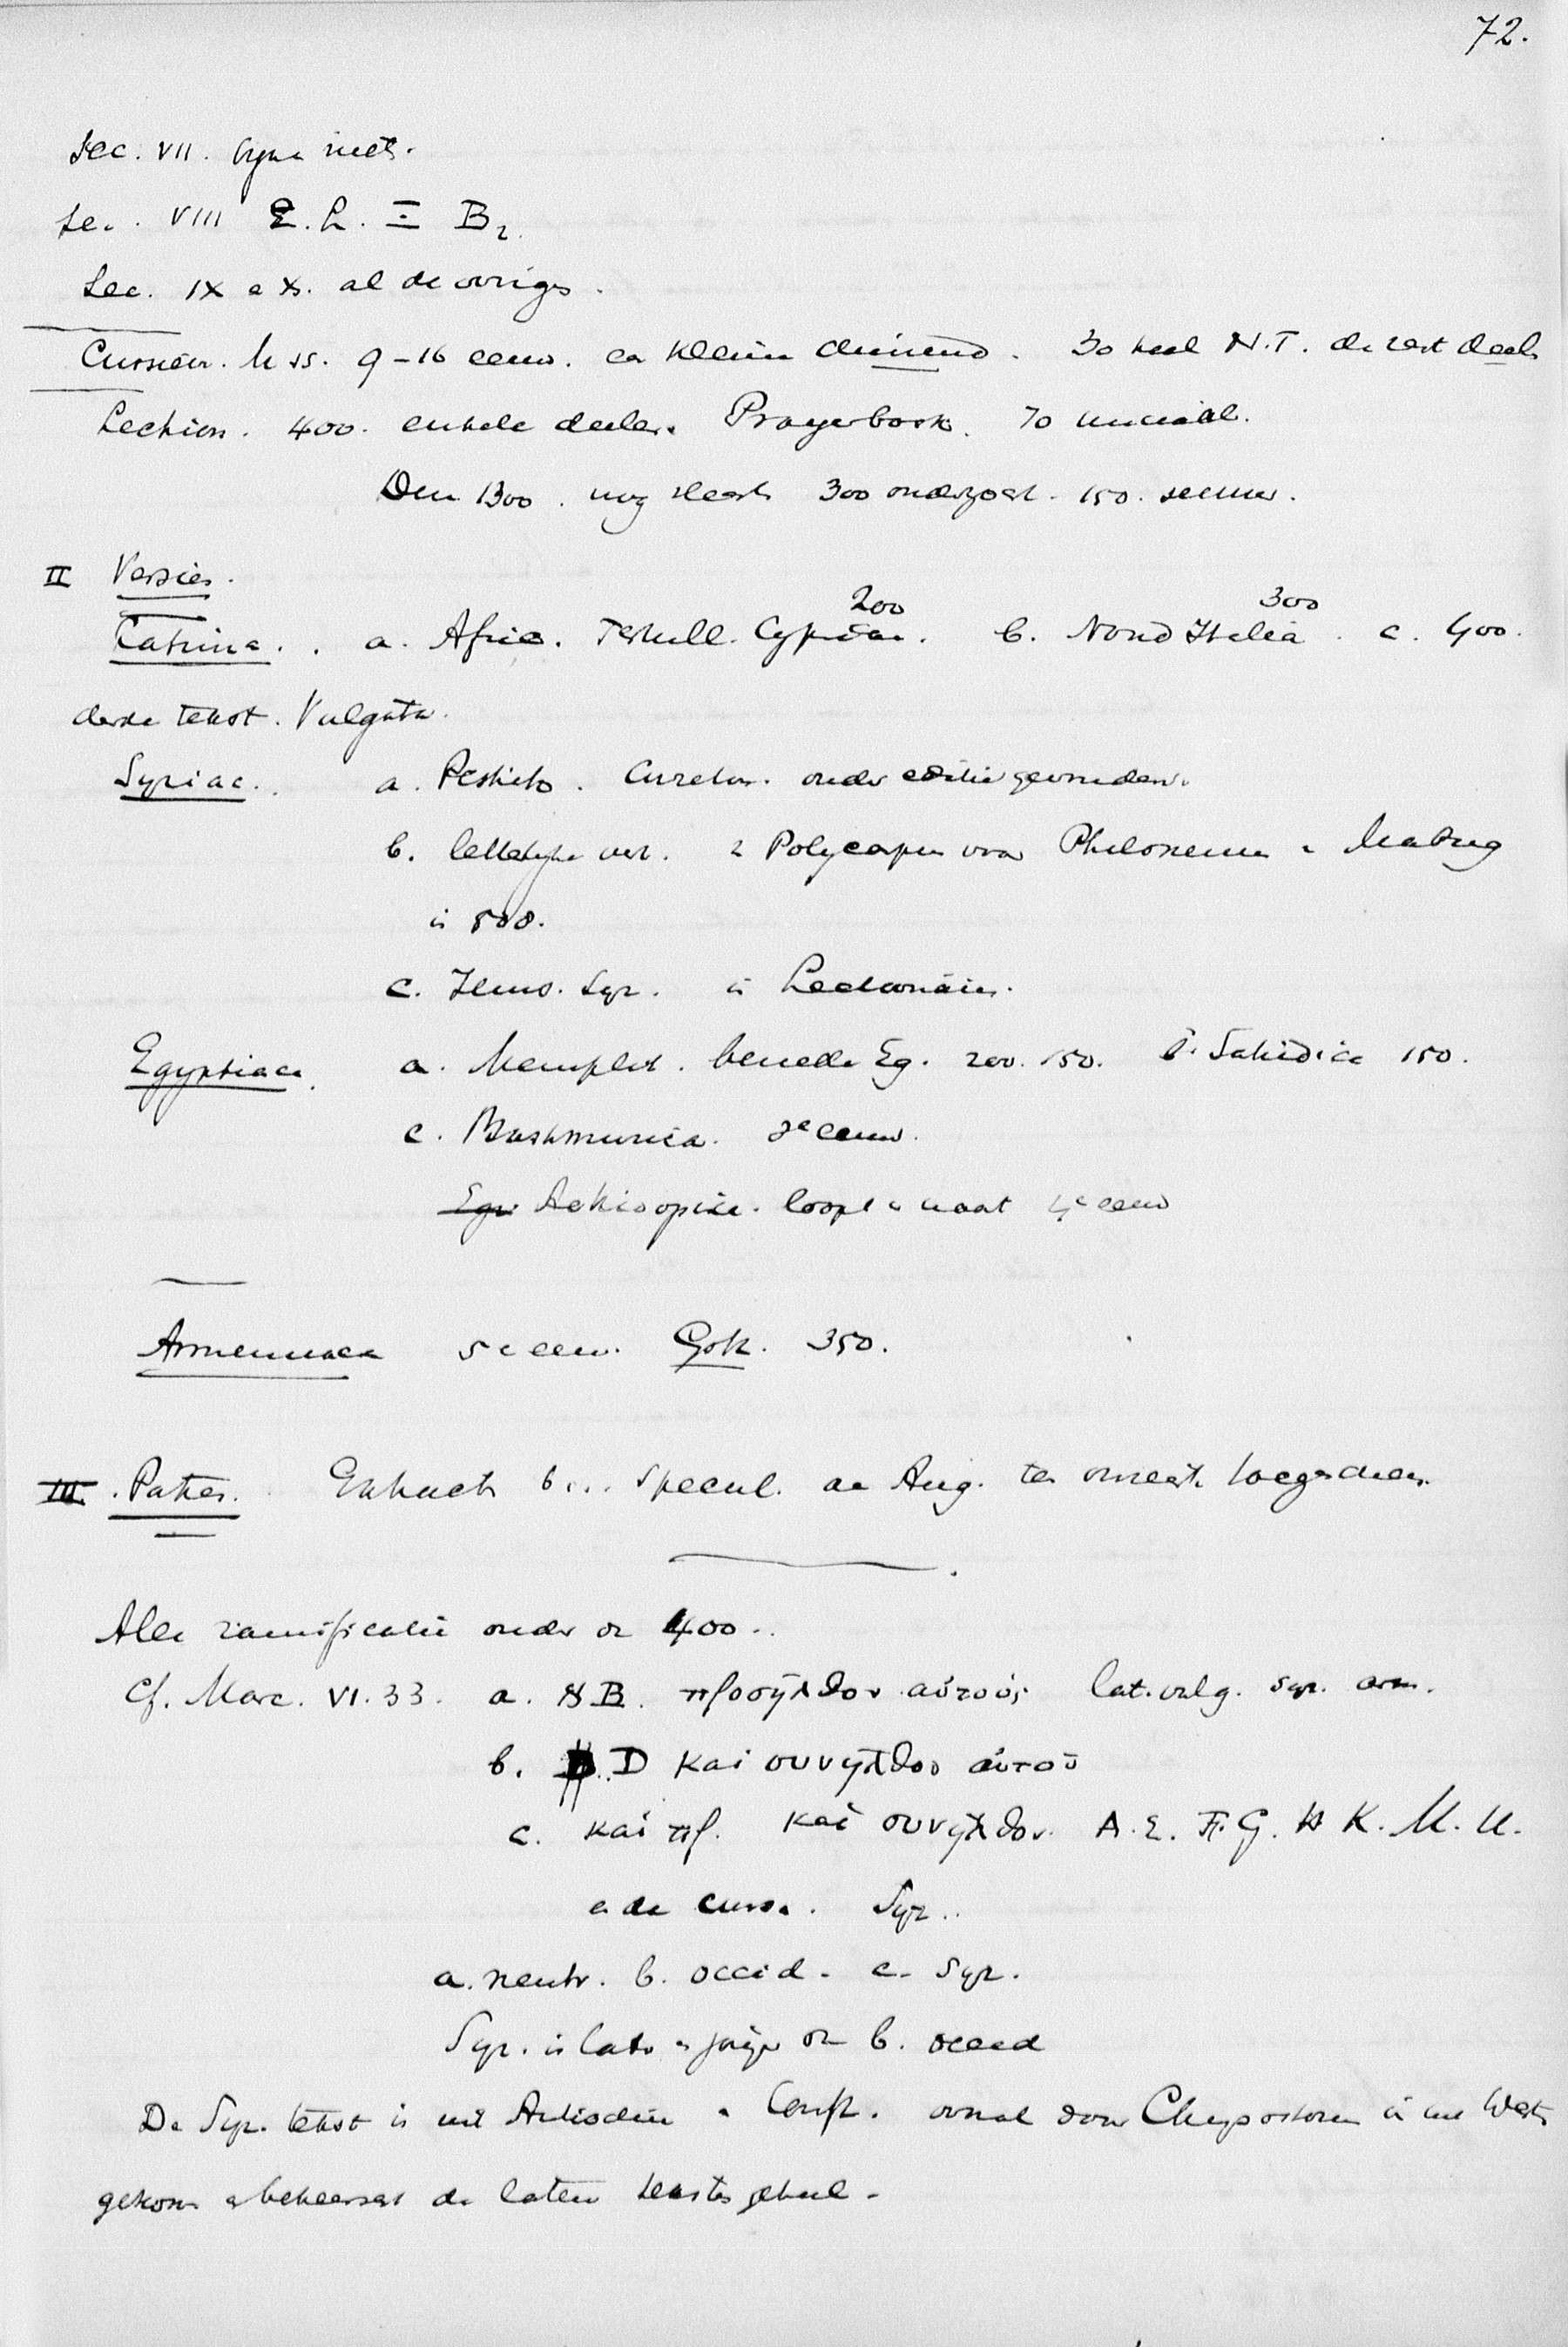 72.
Sec. VII. bijna niets.
Sec. VIII E. L. Ξ B2.
Sec. IX e X. al de overige.
Cursiev. Mss. 9-16 eeuw. en klein duizend. 30 heel N.T. de rest deels
Lection. 400. enkele deelen. Prayerbook. 70 unciaal.
Den 1300. nog slechts 300 onderzocht. 150.
II Versies.
Latina. a. Afric. Tertull. Cyprian. 200 b. Noord Italia 300. c. 400.
derde tekst. Vulgata.
Syriac. a. Peshito. Cureton. oude editie gevonden.
b. letterlijke vert. Polycarpus voor Philoxenus Mabug
in 508.
c. Jerus. Syr. in Lectionariis.
Egyptiaca. a. Memphit. beneden Eg. 200. 150. b. Sahidica 150.
c. Bashmurica. 3e eeuw.
Egy Aethiopica. loopt naast 4e eeuw
Armeniaca 5e eeuw. Goth. 350.
III. Patres. Specul. Aug. ten onrechte toegeschreven.
Alle ramificatie onder de 400..
Cf. Marc. VI. 33. a. א B. προσῆλθον αὐτούς lat. vulg. syr. arm.
b. D. D και συνῆλθον αὐτοῦ
c. και πρ. και συνῆλθον. A. E. F. G. H K. M. U.
e de curs. Syr..
a. neutr. b. occid. c. Syr.
Syr. is later en jonger dan b. occid
De Syr. tekst is uit Antiochië Const. vooral door Chrysostom in het Westen
gekomen beheerscht de latere teksten geheel.